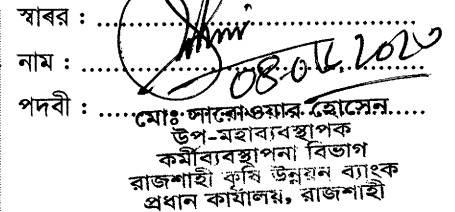 স্বাক্ষর :
নাম :
08.04.2020
পদবী :
মোঃ সারোওয়ার হোসেন
উপ-মহাব্যবস্থাপক
কর্মীব্যবস্থাপনা বিভাগ
রাজশাহী কৃষি উন্নয়ন ব্যাংক
প্রধান কার্যালয়, রাজশাহী